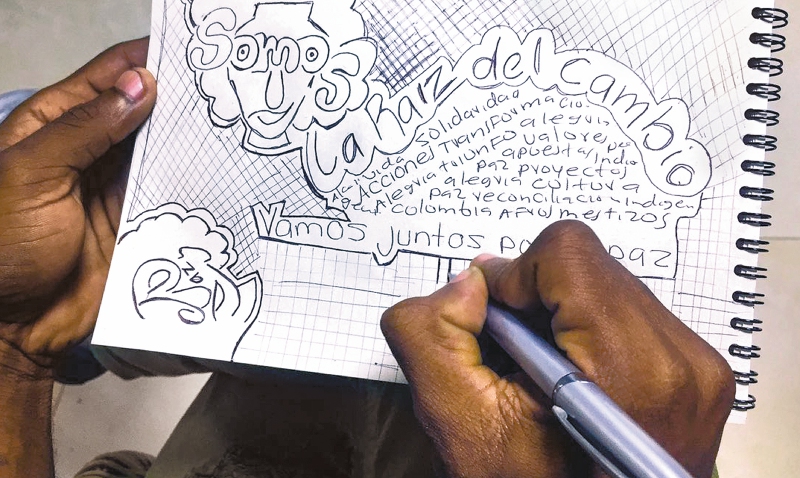 Somos
La Raiz del cambio
solidaridad
ayuda ACCIONES TransFormacio
Alegria triunfo valores
apuestas indio
paz proyectos
alegria cultura
paz reconciliacion indigen
Colombia AFros mestizos
Vamos juntos paz